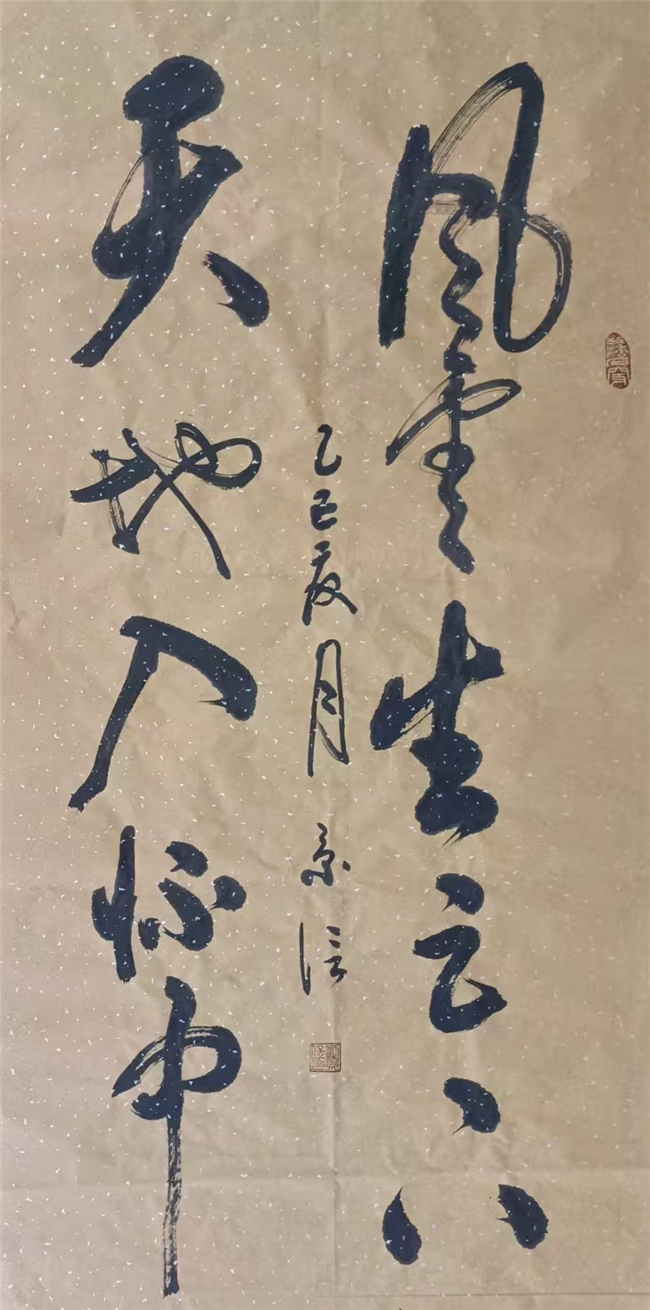 风雲生足下
天地入怀中
乙巳夏月 景信